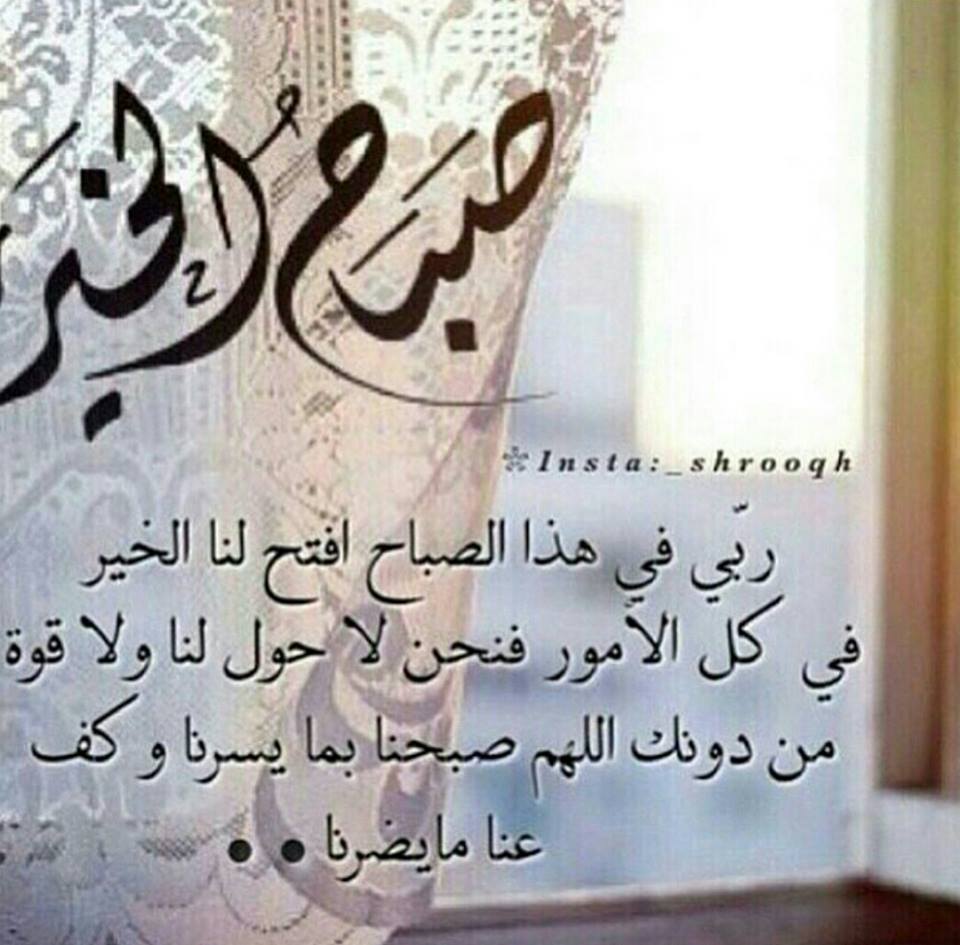 صباح الخير
❊Insta:_shrooqh
ربّي في هذا الصباح افتح لنا الخير
في كل الأمور فنحن لا حول لنا ولا قوة
من دونك اللهم صبحنا بما يسرنا و كف
عنا مايضرنا ● ●